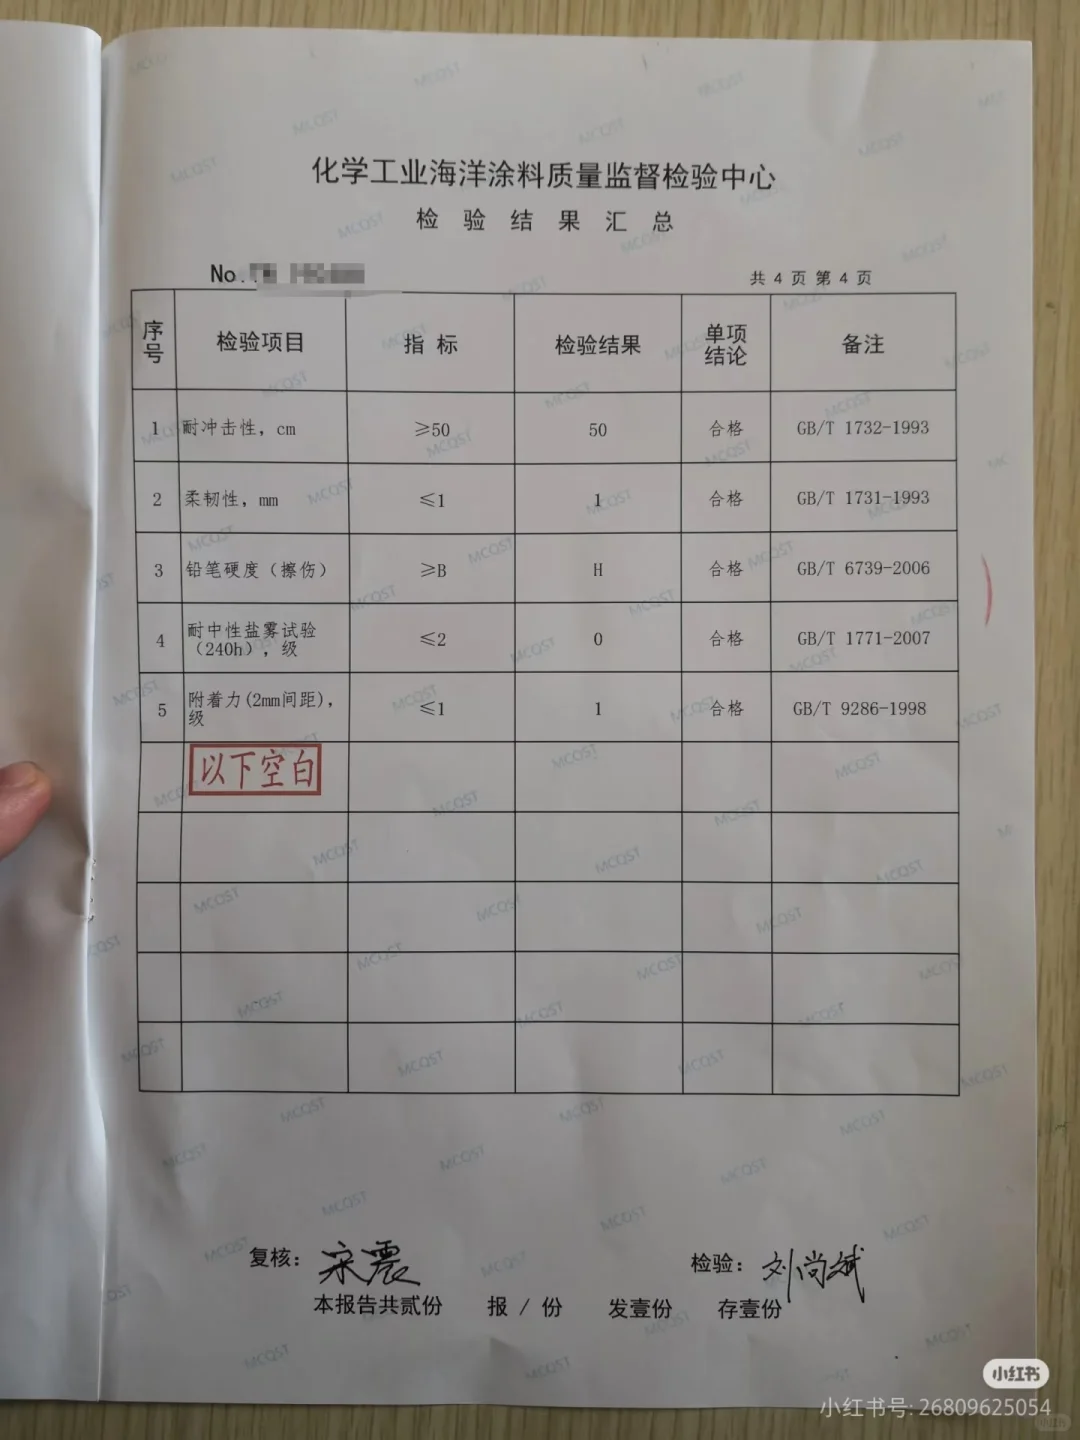 化学工业海洋涂料质量监督检验中心
检 验 结 果 汇 总
No.
共 4 页 第 4 页
序号 检验项目 指 标 检验结果 单项结论 备注
1 耐冲击性，cm ≥50 50 合格 GB/T 1732-1993
2 柔韧性，mm ≤1 1 合格 GB/T 1731-1993
3 铅笔硬度（擦伤） ≥B H 合格 GB/T 6739-2006
4 耐中性盐雾试验（240h），级 ≤2 0 合格 GB/T 1771-2007
5 附着力(2mm间距)，级 ≤1 1 合格 GB/T 9286-1998
以下空白
复核： 宋震 检验： 刘尚斌
本报告共贰份 报 / 份 发壹份 存壹份
MCQST
小红书
小红书号: 26809625054